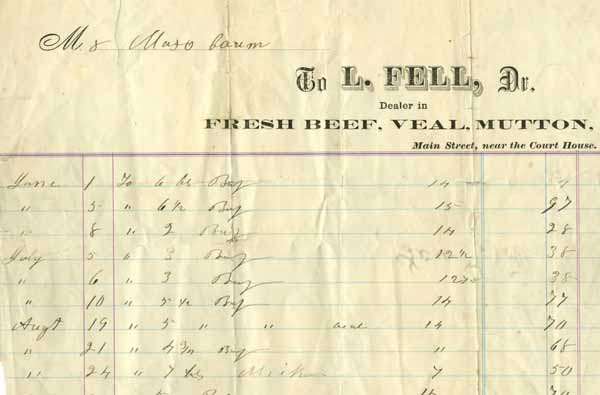 Mr Mayo baum
To L. FELL, Dr.
Dealer in
FRESH BEEF, VEAL, MUTTON,
Main Street, near the Court House.
June 1 To 6 lbs Beef 14
" 5 " 6 1/2 Beef 15 97
" 8 " 2 Beef 14 28
July 5 " 3 Beef 12 1/2 38
" 6 " 3 Beef 12 1/2 38
" 10 " 5 1/2 Beef 14 77
Augt 19 " 5 " " 14 70
" 21 " 4 3/4 Beef " 68
" 24 " 7 lbs 7 50